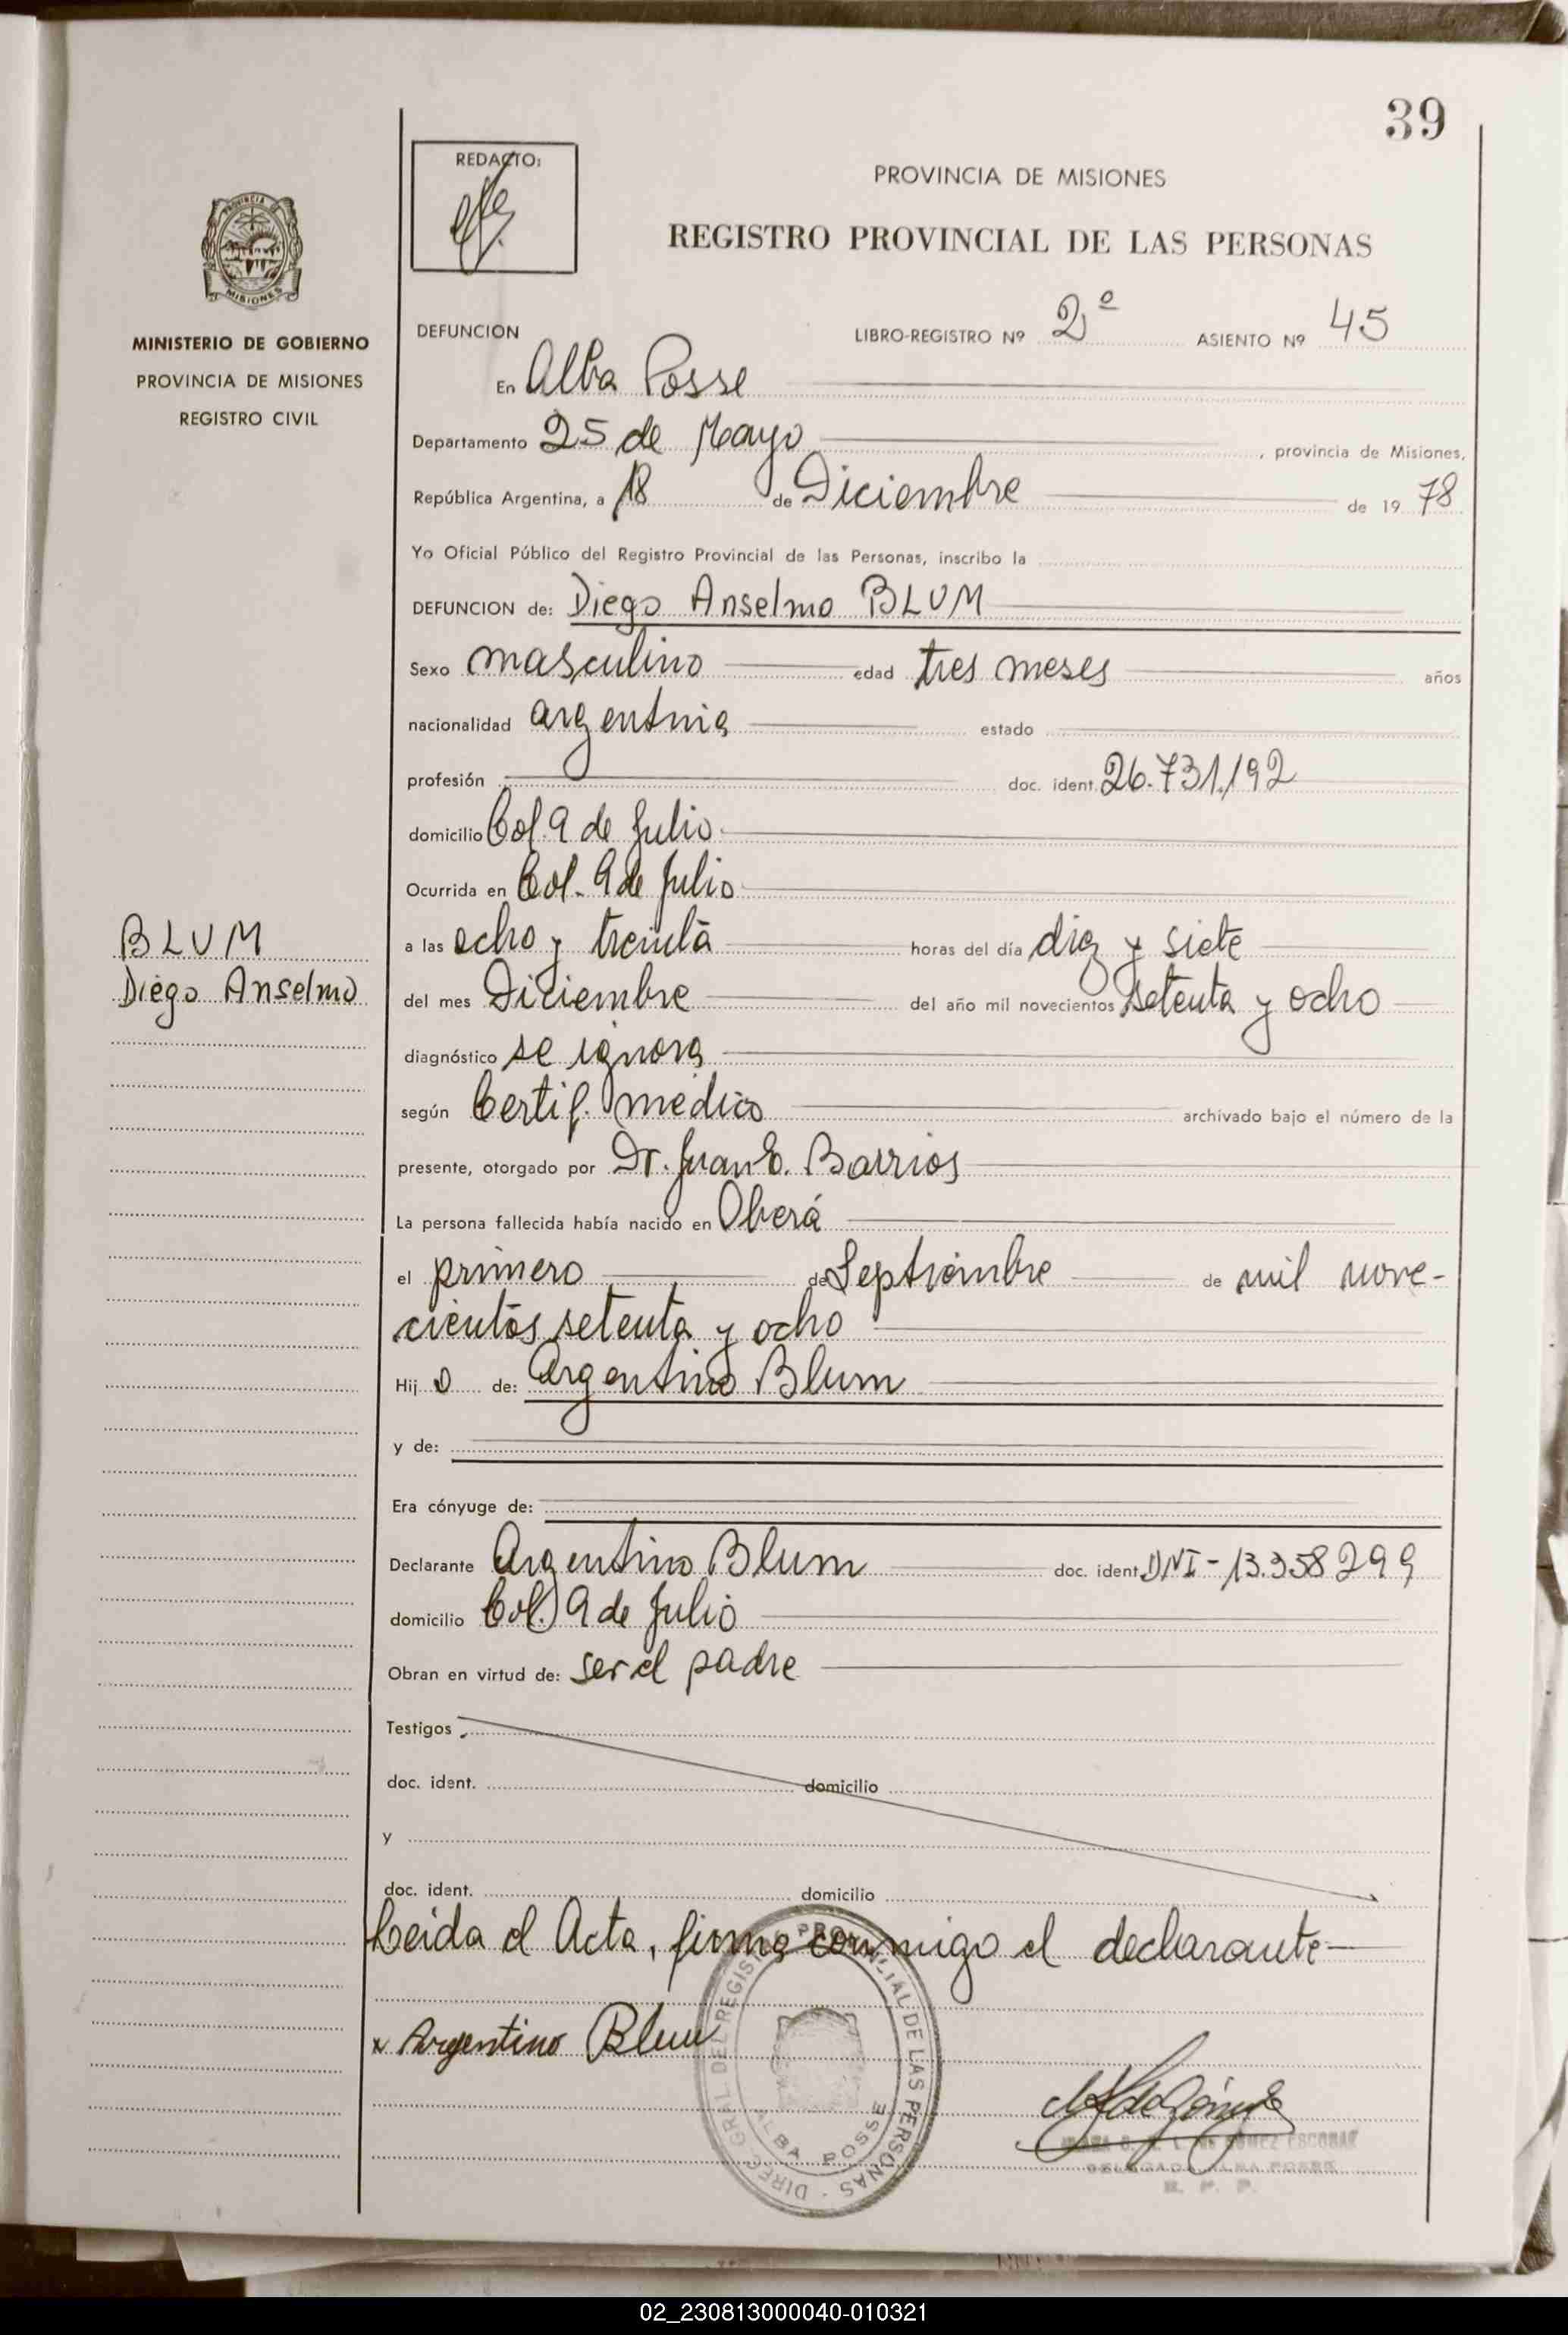 39
REDACTO:
PROVINCIA DE MISIONES
REGISTRO PROVINCIAL DE LAS PERSONAS
PROVINCIA DE
MISIONES
MINISTERIO DE GOBIERNO
PROVINCIA DE MISIONES
REGISTRO CIVIL
DEFUNCION LIBRO-REGISTRO Nº 2º ASIENTO Nº 45
En Alba Posse
Departamento 25 de Mayo, provincia de Misiones,
República Argentina, a 18 de Diciembre de 1978
Yo Oficial Público del Registro Provincial de las Personas, inscribo la
DEFUNCION de: Diego Anselmo BLUM
Sexo masculino edad tres meses años
nacionalidad argentina estado
profesión doc. ident. 26.731.192
domicilio Col. 9 de Julio
Ocurrida en Col. 9 de Julio
BLUM
Diego Anselmo
a las ocho y treinta horas del día diez y siete
del mes Diciembre del año mil novecientos setenta y ocho
diagnóstico se ignora
según Certif. médico archivado bajo el número de la
presente, otorgado por Dr. Juan E. Barrios
La persona fallecida había nacido en Oberá
el primero de Septiembre de mil nove-
cientos setenta y ocho
Hijo de: Argentino Blum
y de:
Era cónyuge de:
Declarante Argentino Blum doc. ident DNI-13.358299
domicilio Col. 9 de Julio
Obran en virtud de: ser el padre
Testigos
doc. ident. domicilio
y
doc. ident. domicilio
Leida el Acta, firma conmigo el declarante
x Argentino Blum
DIREC. GRAL DEL REGISTRO PROVINCIAL DE LAS PERSONAS
ALBA POSSE
GOMEZ ESCOBAR
DELEGADA ALBA POSSE
R. P. P.
02_230813000040-010321